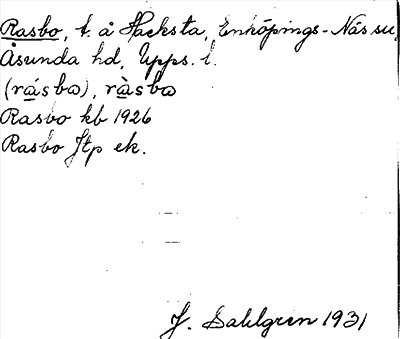 Rasbo, t. å Hacksta, Enköpings-Näs sn,
Åsunda hd, Upps. l.
(rásbω), ràsbω
Rasbo kb 1926
Rasbo Jtp ek.
J. Sahlgren 1931